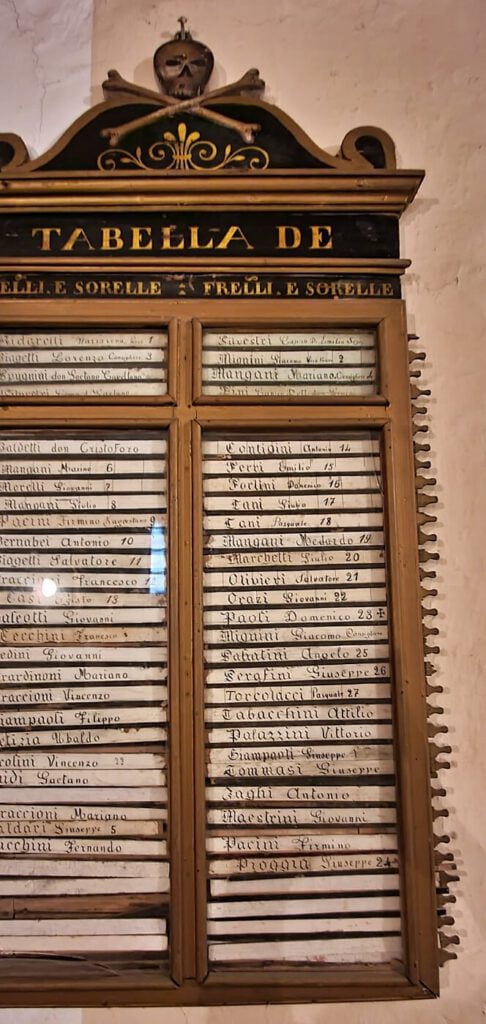 TABELLA DE
ELLI. E SORELLE FRELLI. E SORELLE
Lorenzo Consigliere 3
Silvestri
Mionini Giacomo 2
Mangani Mariano
Baldetti don Cristoforo
Mangani Marino 6
Morelli Giovanni 7
Mangani Giulio 8
Pacini Firmino 9
Bernabei Antonio 10
Biagetti Salvatore 11
raccioni Francesco 12
13
Giovanni
Cecchini Francesco
edini Giovanni
rardinoni Mariano
raccioni Vincenzo
iampaoli Filippo
etizia Ubaldo
colini Vincenzo 22
uidi Gaetano
raccioni Mariano
aldari Giuseppe 5
acchini Fernando
Contidini Antonio 14
Ferri Emilio 15
Forlini Domenico 16
Tani Giulio 17
Tani Pasquale 18
Mangani Medardo 19
Marchetti Giulio 20
Olivieri Salvatore 21
Orazi Giovanni 22
Paoli Domenico 23
Mionini Giacomo Consigliere
Sabatini Angelo 25
Serafini Giuseppe 26
Torcolacci Pasquale 27
Tabacchini Attilio
Palazzini Vittorio
Giampaoli Giuseppe
Tommasi Giuseppe
Zaghi Antonio
Maestrini Giovanni
Pacini Firmino
Pioggia Giuseppe 24